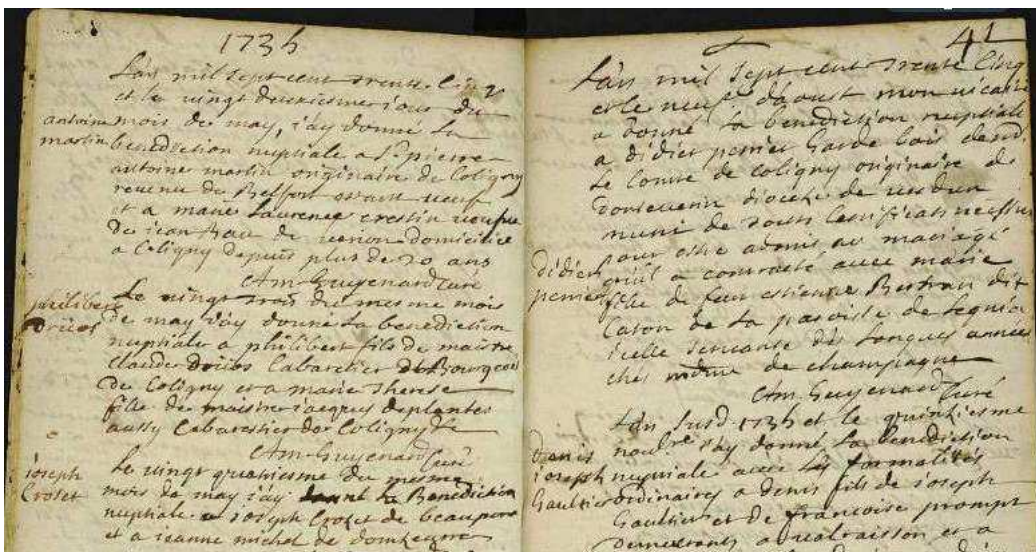 1735
L'an mil sept cent trente Cinq
et le vingt deuxiesme jour du
antoine
martin
mois de may, j'ay donné La
benediction nuptiale a Sr pierre
antoine martin originaire de Coligny
revenu de Belfort estant veuf
et a marie Laurence crestin veufve
de jean de domicilié
a Coligny depuis plus de 20 ans
Am. Guyenard Curé
philibert
Le vingt trois du mesme mois
de may j'ay donné La benediction
nuptiale a philibert fils de maitre
claude Cabaretier Bourgeois
de Coligny et a marie Therese
fille de maistre jacques deplantes
aussy Cabaretier de Coligny
Am. Guyenard Curé
joseph
Croset
Le vingt quatriesme du mesme
mois de may j'ay donné La Benediction
nuptiale a joseph Crozet de beaupont
et a jeanne michel de
41
L'an mil sept cent trente Cinq
et le neuf d'aoust mon vicaire
a donné La benediction nuptiale
a didier perrier Garde bois de
Le Comte de Coligny originaire de
diocese de verdun
muni de touts Certificats
pour estre admis au mariage
didier
perrier
qu'il a contracté avec marie
fille de feu estienne Bertran dit
Caton de La paroisse de
icelle servante dès Longues années
ches de champagne
Am. Guyenard Curé
L'an Susd. 1735 et le quinziesme
Denis
joseph
Gaultier
novbre j'ay donné La benediction
nuptiale avec Les formalités
ordinaires a denis fils de joseph
Gaultier et de francoise prompt
demeurants a et a